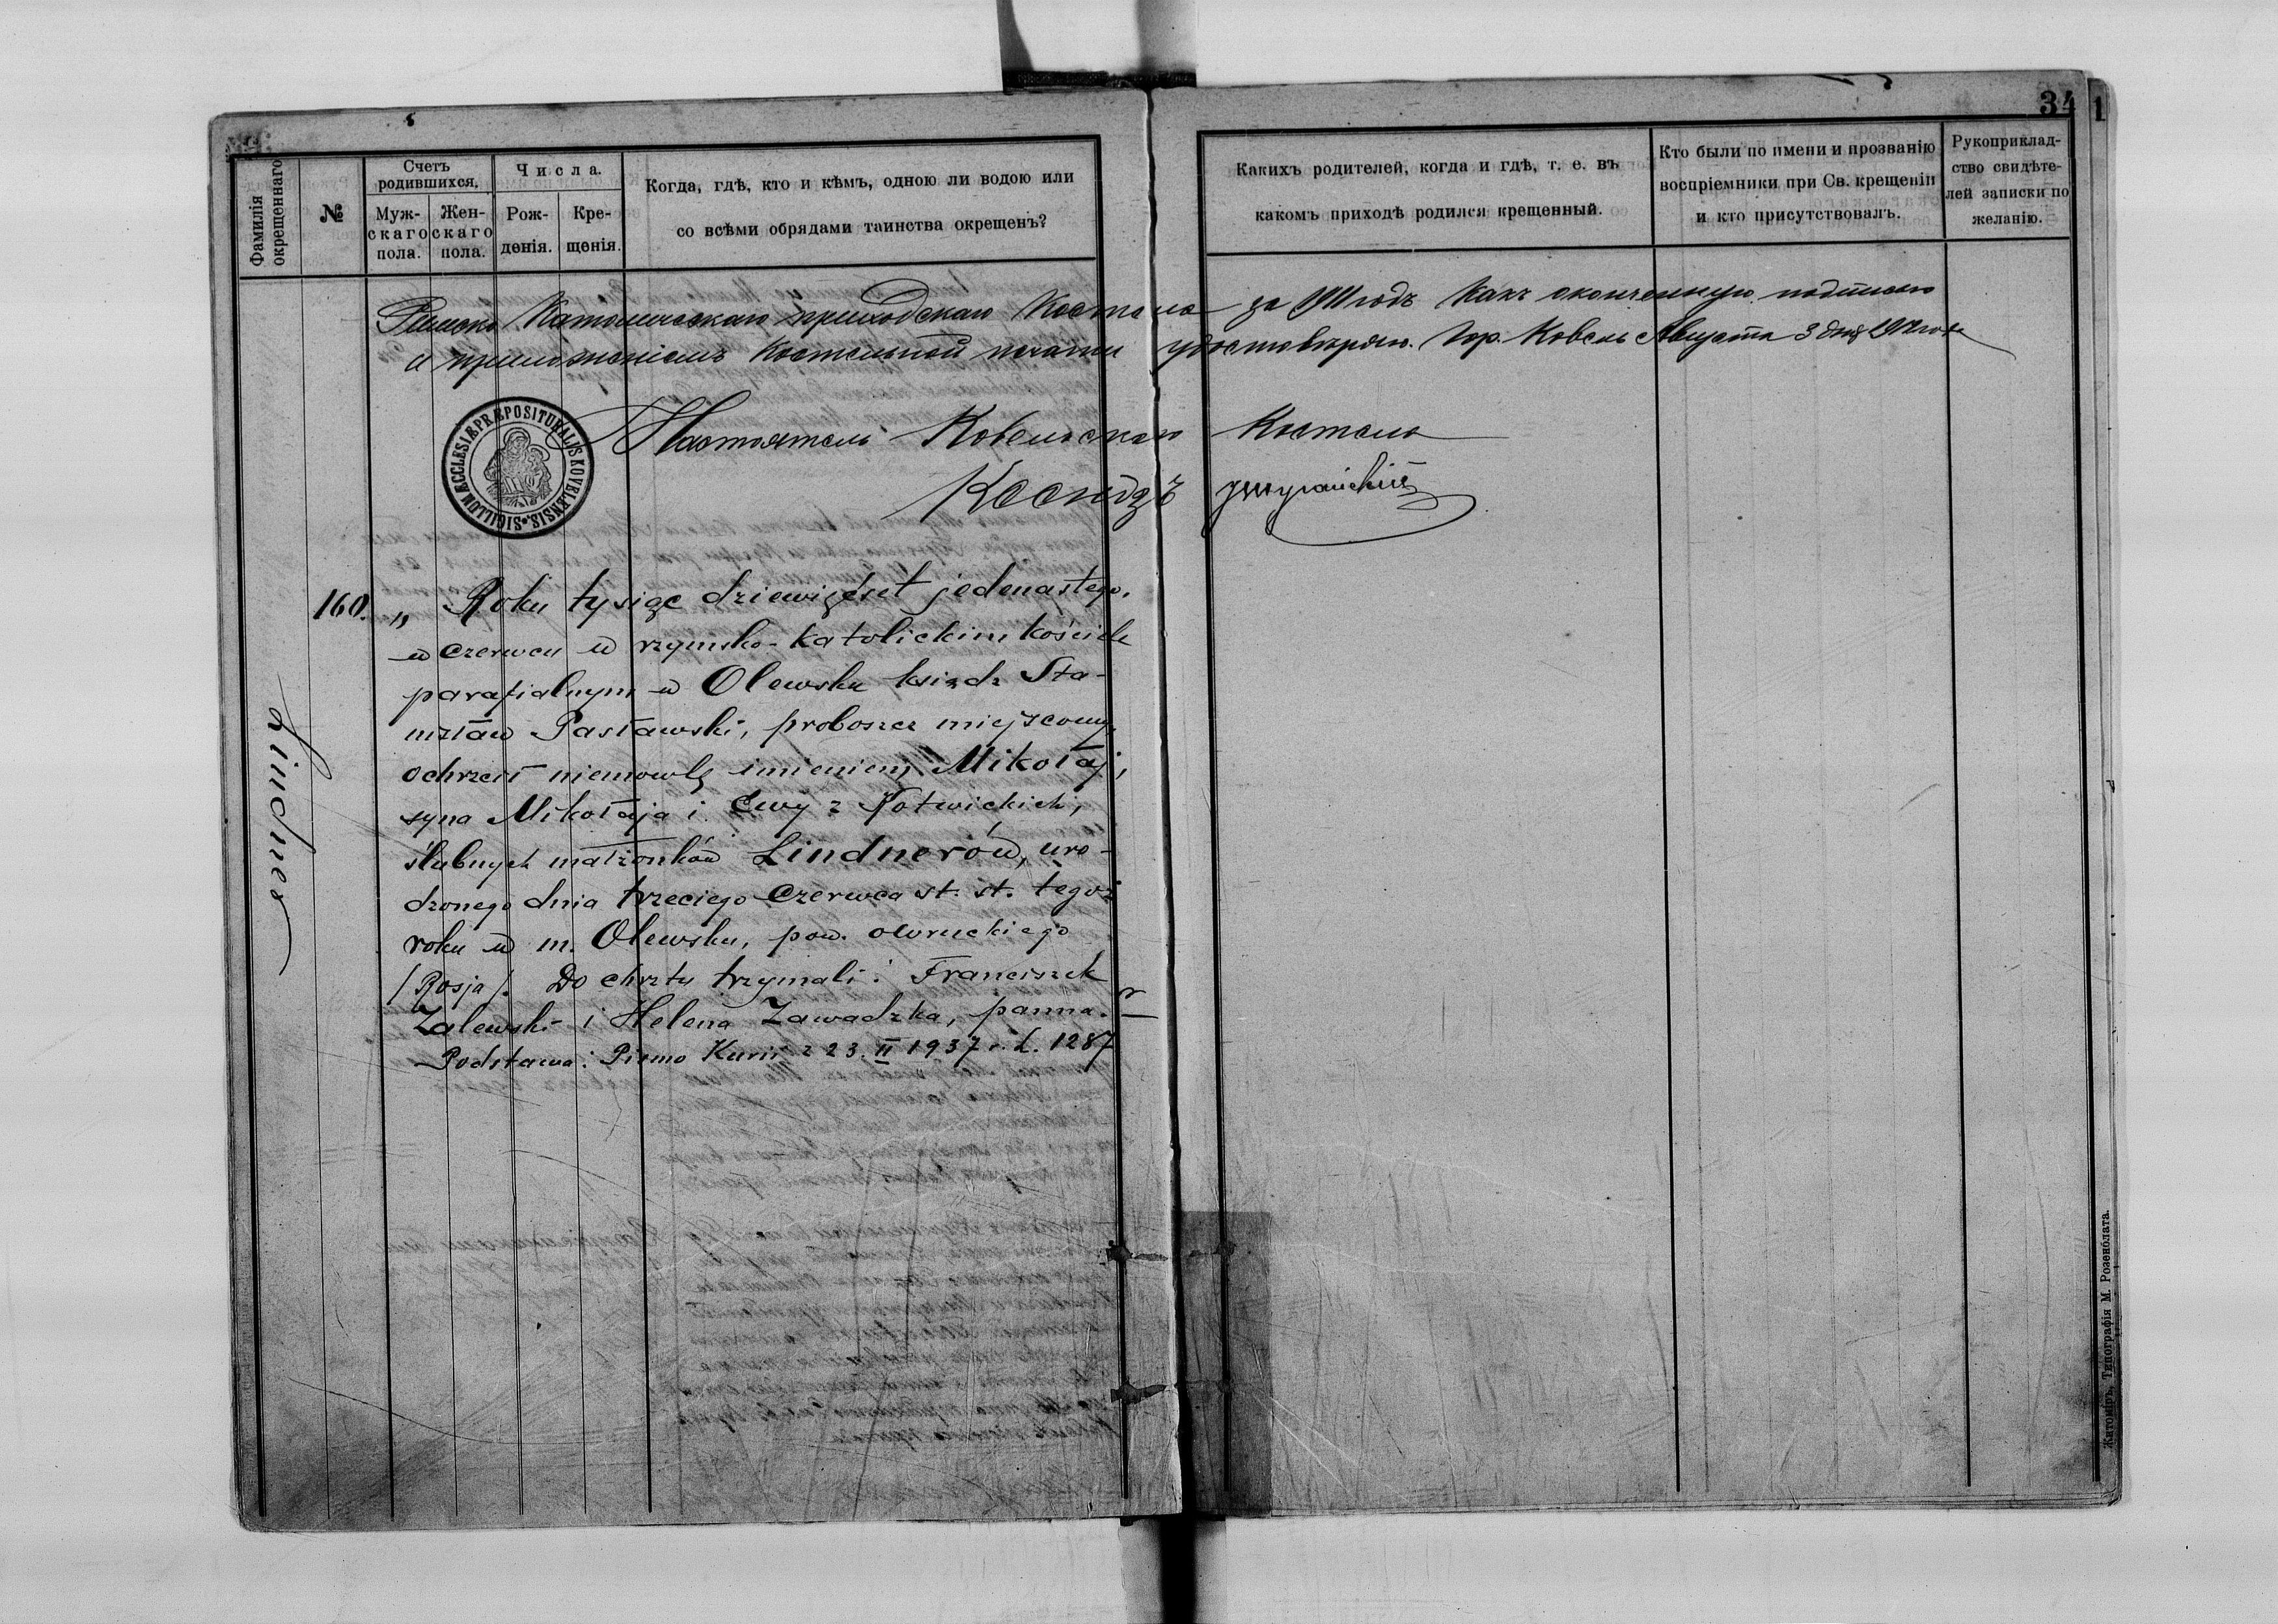 34
1
Фамилія
окрещеннаго
№
Счетъ
родившихся.
Муж-
скаго
пола.
Жен-
скаго
пола.
Числа.
Рож-
денія.
Кре-
щенія.
Когда, гдѣ, кто и кѣмъ, одною ли водою или
со всѣми обрядами таинства окрещенъ?
Какихъ родителей, когда и гдѣ, т. е. въ
какомъ приходѣ родился крещенный.
Кто были по имени и прозванію
воспріемники при Св. крещеніи
и кто присутствовалъ.
Рукоприклад-
ство свидѣте-
лей записки по
желанію.
Римско Католическаго приходскаго Костела за 1911 годъ какъ оконченную подписью
и приложеніемъ Костельной печати удостовѣряю. Гор. Ковель Августа 3 дня 1912 года
Настоятель Ковельскаго Костела
Ксендзъ
SIGILLUM ECCLESIÆ PRÆPOSITURALIS KOVELENSIS
Lindner
160.
„ Roku tysiąc dziewięćset jedenastego,
w czerwcu w rzymsko-katolickim kościele
parafialnym w Olewsku ksiądz Sta-
nisław Pasławski, proboszcz miejscowy,
ochrzcił niemowlę imieniem Mikołaj,
syna Mikołaja i Ewy z Kotwickich,
ślubnych małżonków Lindnerów, uro-
dzonego dnia trzeciego czerwca st. st. tegoż
roku w m. Olewsku, pow. owruckiego
/Rosja/. Do chrztu trzymali: Franciszek
Zalewski i Helena Zawadzka, panna.
Podstawa: Pismo Kurii z 23. II 1937 r. L. 1287
Житоміръ, Типографія М. Розенблата.